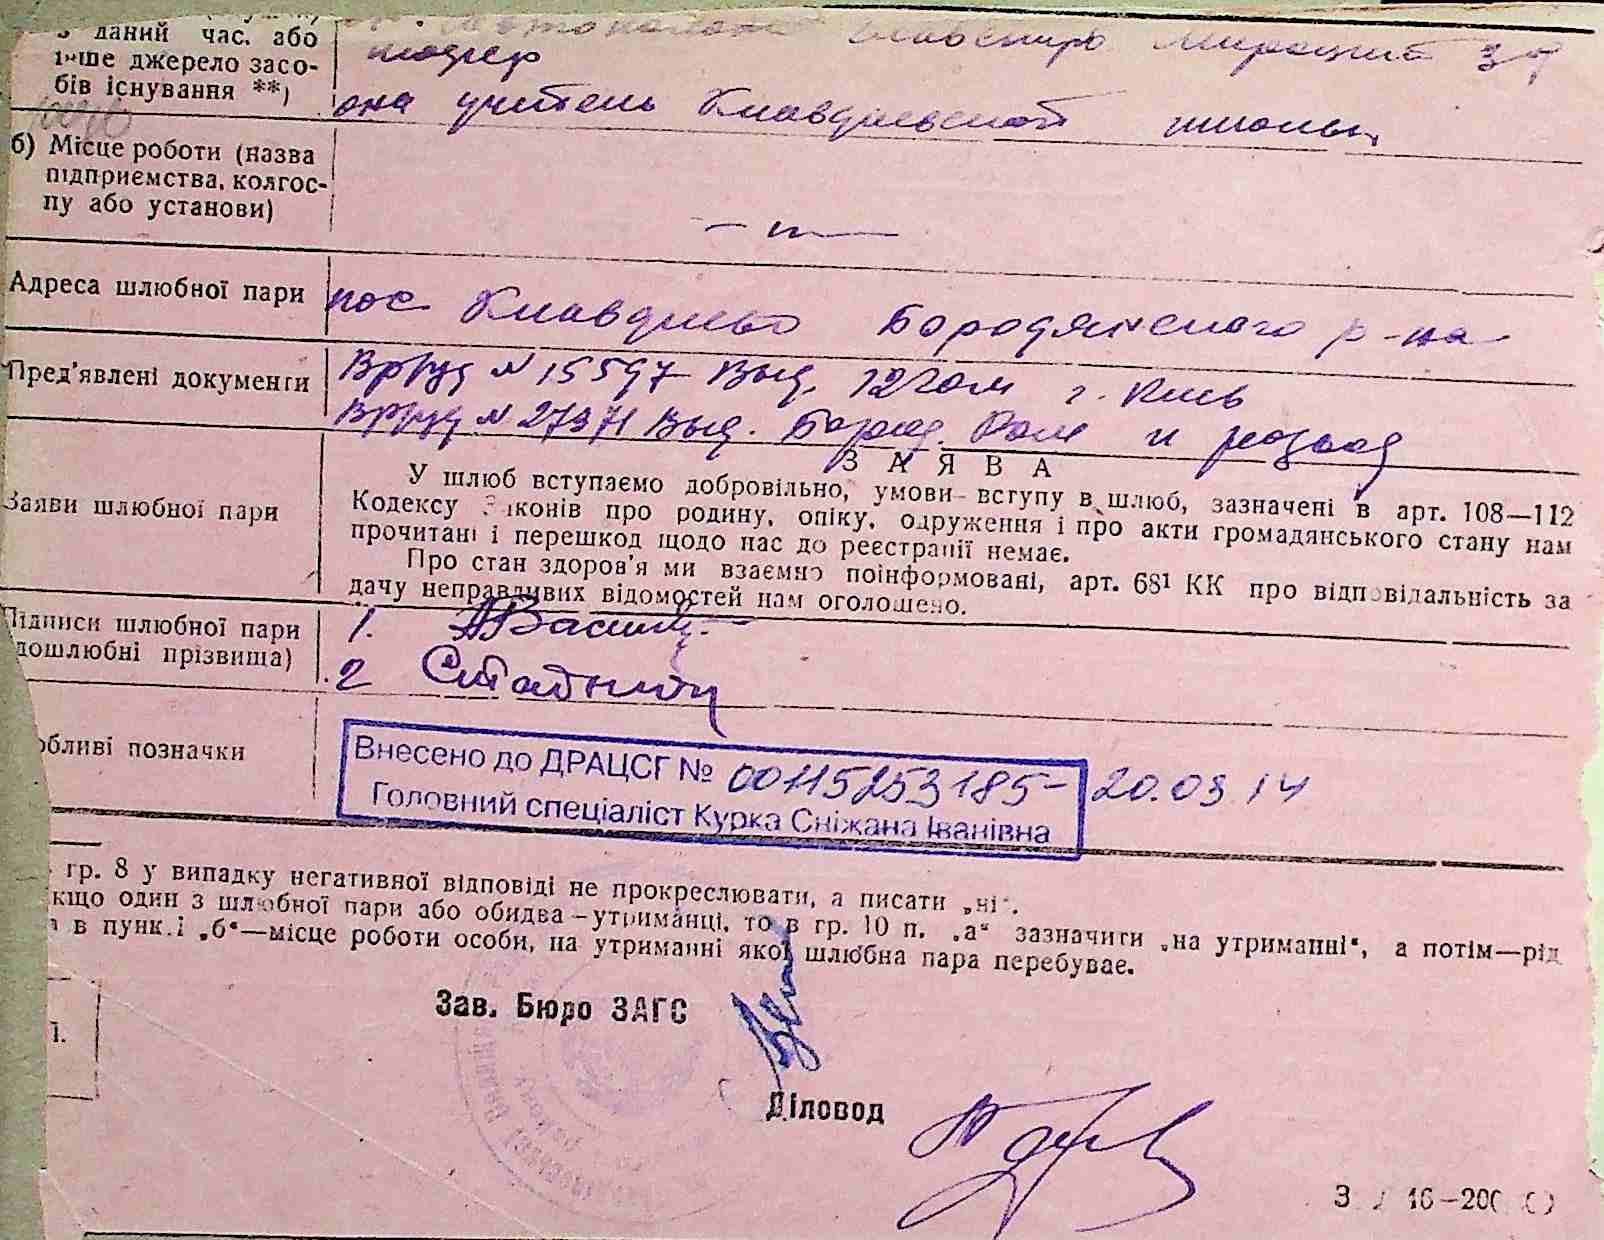 даний час, або
інше джерело засо-
бів існування **)
шофер
она учитель Клавдиевской школы
б) Місце роботи (назва
підприємства, колгос-
пу або установи)
— " —
Адреса шлюбної пари
пос Клавдиево Бородянского р-на
Пред'явлені документи
Вр/уд N 15597 Выд. 12 гом г. Киев
Вр/уд N 27371 Выд. Бород. Ром и развод
Заяви шлюбної пари
ЗАЯВА
У шлюб вступаємо добровільно, умови вступу в шлюб, зазначені в арт. 108—112
Кодексу Законів про родину, опіку, одруження і про акти громадянського стану нам
прочитані і перешкод щодо нас до реєстрації немає.
Про стан здоров'я ми взаємно поінформовані, арт. 68¹ КК про відповідальність за
дачу неправдивих відомостей нам оголошено.
Підписи шлюбної пари
дошлюбні прізвища)
1.
2 Стадник
обливі позначки
Внесено до ДРАЦСГ № 00115253185- 20.03.14
Головний спеціаліст Курка Сніжана Іванівна
гр. 8 у випадку негативної відповіді не прокреслювати, а писати „ні“.
кщо один з шлюбної пари або обидва—утриманці, то в гр. 10 п. „а“ зазначити „на утриманні“, а потім—рід
а в пункті „б“—місце роботи особи, на утриманні якої шлюбна пара перебуває.
Зав. Бюро ЗАГС
Діловод